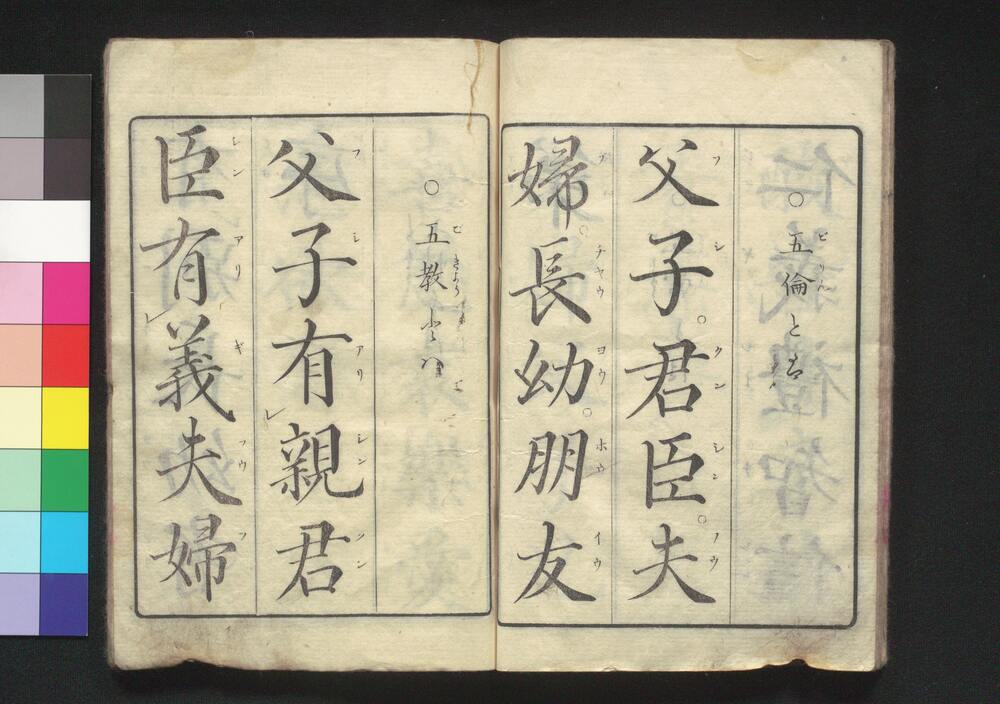 ○五倫とは
父子○君臣○夫
婦○長幼○朋友
○五教とハ
父子有親君
臣有義夫婦